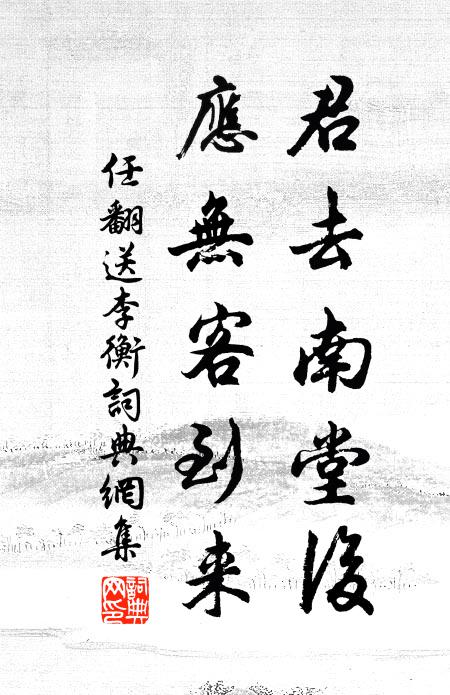 君去南堂後
應無客到来
任翻送李衡詞典網集
詞典网印